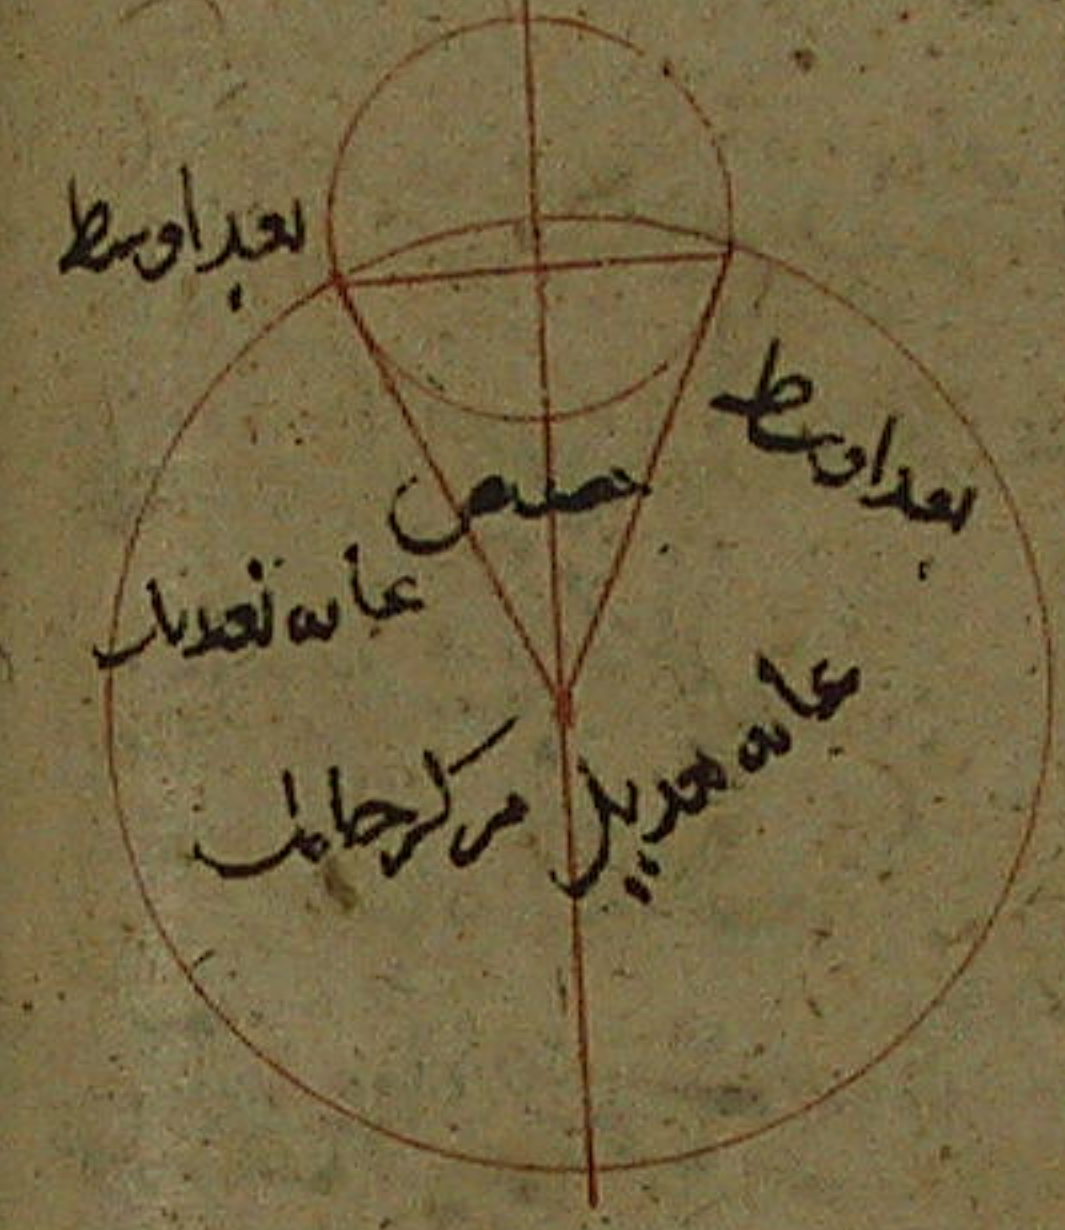 بعد اوسط
بعد اوسط
حضیض
غایه تعدیل
غایه تعدیل
مرکز حامل